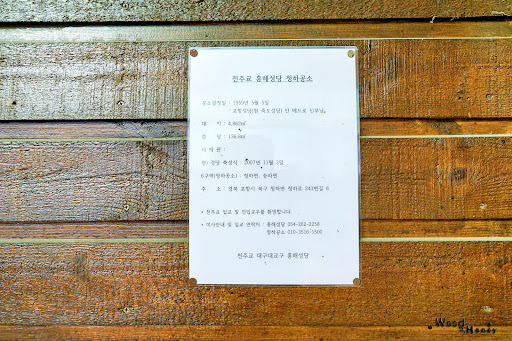 천주교 흥해성당 청하공소
공소설정일 : 1959년 5월 5일
: 포항성당(현 죽도성당) 안 베드로 신부님
대 지 : 4,862㎡
건 평 : 136.8㎡
사 제 관 :
현) 경당 축성식 : 2007년 11월 3일
6구역(청하공소) : 청하면, 송라면
주 소 : 경북 포항시 북구 청하면 청하로 243번길 8
* 천주교 입교 및 전입교우를 환영합니다.
* 미사안내 및 입교 연락처 : 흥해성당 054-262-2258
청하공소 010-3516-1500
천주교 대구대교구 흥해성당
Wood
Honey